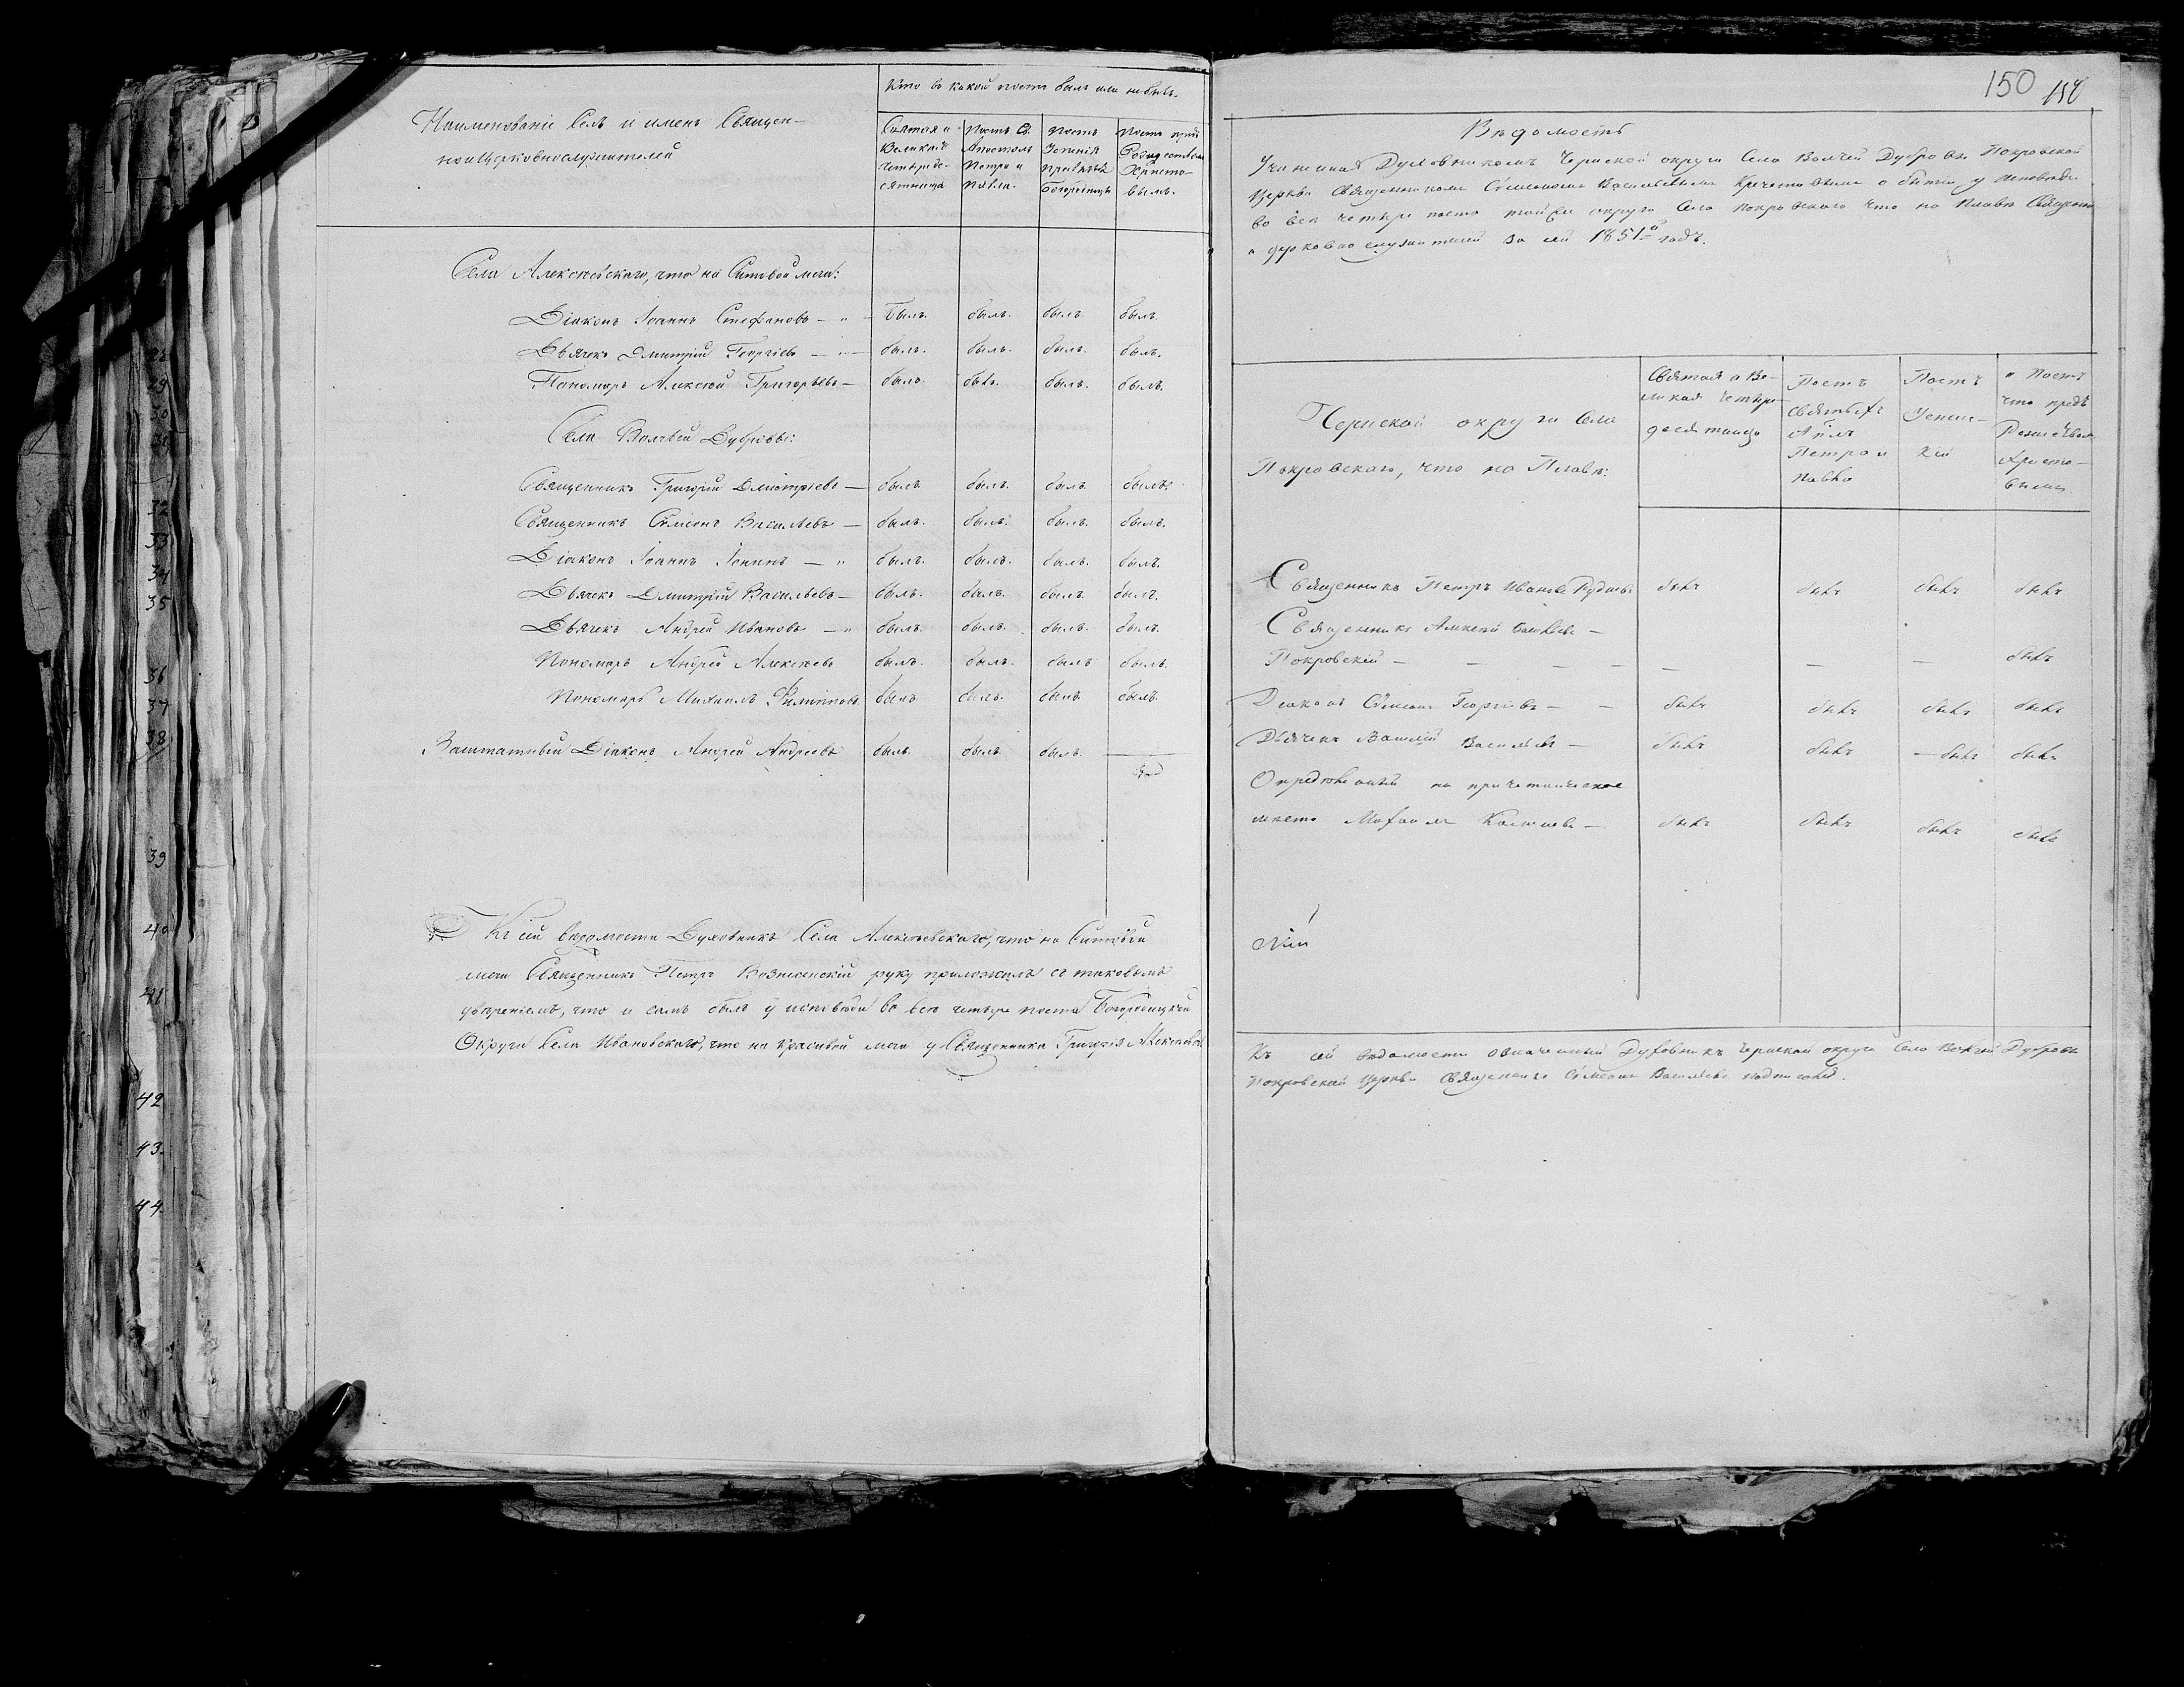 Кто въ какой постъ былъ или небылъ.
Наименованіе Селъ и именъ Священ-
ноицерковнослужителей
Святая и
Великая
четыреде-
сятница
Постъ Св.
Апостолъ
Петра и
Павла.
Постъ
Успенія
Богородицы
Постъ предъ
Рождествомъ
Христо-
вымъ.
Села Алексѣевскаго, что на Ситовой мечи:
Діаконъ Іоаннъ Стефановъ — былъ. былъ. былъ былъ.
Дьячекъ Дмитрій Георгіевъ — былъ. былъ. былъ. былъ.
Пономарь Алексѣй Григорьевъ — былъ. былъ. былъ. былъ.
Села Волчьей Дубровы:
Священникъ Григорій Дмитріевъ — былъ былъ. былъ. былъ.
Священникъ Сѵмеонъ Васильевъ — былъ. былъ. былъ. былъ.
Діаконъ Іоаннъ Іонинъ — былъ. былъ. былъ. былъ.
Дьячекъ Дмитрій Васильевъ — былъ. былъ. былъ. былъ.
Дьячекъ Андрей Ивановъ — былъ. былъ. былъ. былъ.
Пономарь Андрей Алексѣевъ былъ. былъ. былъ былъ.
Пономарь Михаилъ Филипповъ былъ. былъ. былъ. былъ.
Заштатный Діаконъ Андрей Андреевъ былъ. былъ былъ. —
Къ сей ведомости Духовникъ Села Алексѣевскаго, что на Ситовой
мечи Священникъ Петръ Вознесенскій руку приложилъ съ таковымъ
увѣреніемъ, что и самъ былъ у исповѣди во все четыре поста Богородицкой
Округи Села Ивановскаго, что на красивой мечи у Священника Григорія Алексѣева
28
29
30
31
32
33
34
35
36
37
38
39
40
41
42
43.
44.
150 150
Вѣдомость
Учиненная Духовникомъ Чернской округи Села Волчей Дубровы Покровской
Церкви Священникомъ Сѵмеономъ Васильевымъ Кречетовымъ о бытіи у Исповѣди
во все четыре поста той же округи Села Покровскаго что на Плавѣ Священно
и церковно служителей за сей 1851й годъ.
Чернской округи Села
Покровскаго, что на Плавѣ:
Святая и Ве-
ликая четыре-
десятница
Постъ
Святыхъ
Апл̃ъ
Петра и
Павла
Постъ
Успен-
скій
и Постъ
что предъ
Христо-
вымъ
Священникъ Петръ Ивановъ Рудневъ былъ былъ былъ былъ
Священникъ Алексѣй —
Покровскій — — — — — — — былъ
Діаконъ Сѵмеонъ Георгіевъ — — былъ былъ былъ былъ
Дьячекъ Василій Васильевъ — былъ былъ — былъ былъ
Опредѣленный на причетническое
мѣсто Михаилъ — былъ былъ былъ былъ
Къ сей ведомости означенный Духовникъ Чернской округи Села Волчей Дубровы
Покровской Церкви Священникъ Сѵмеонъ Васильевъ подписался.